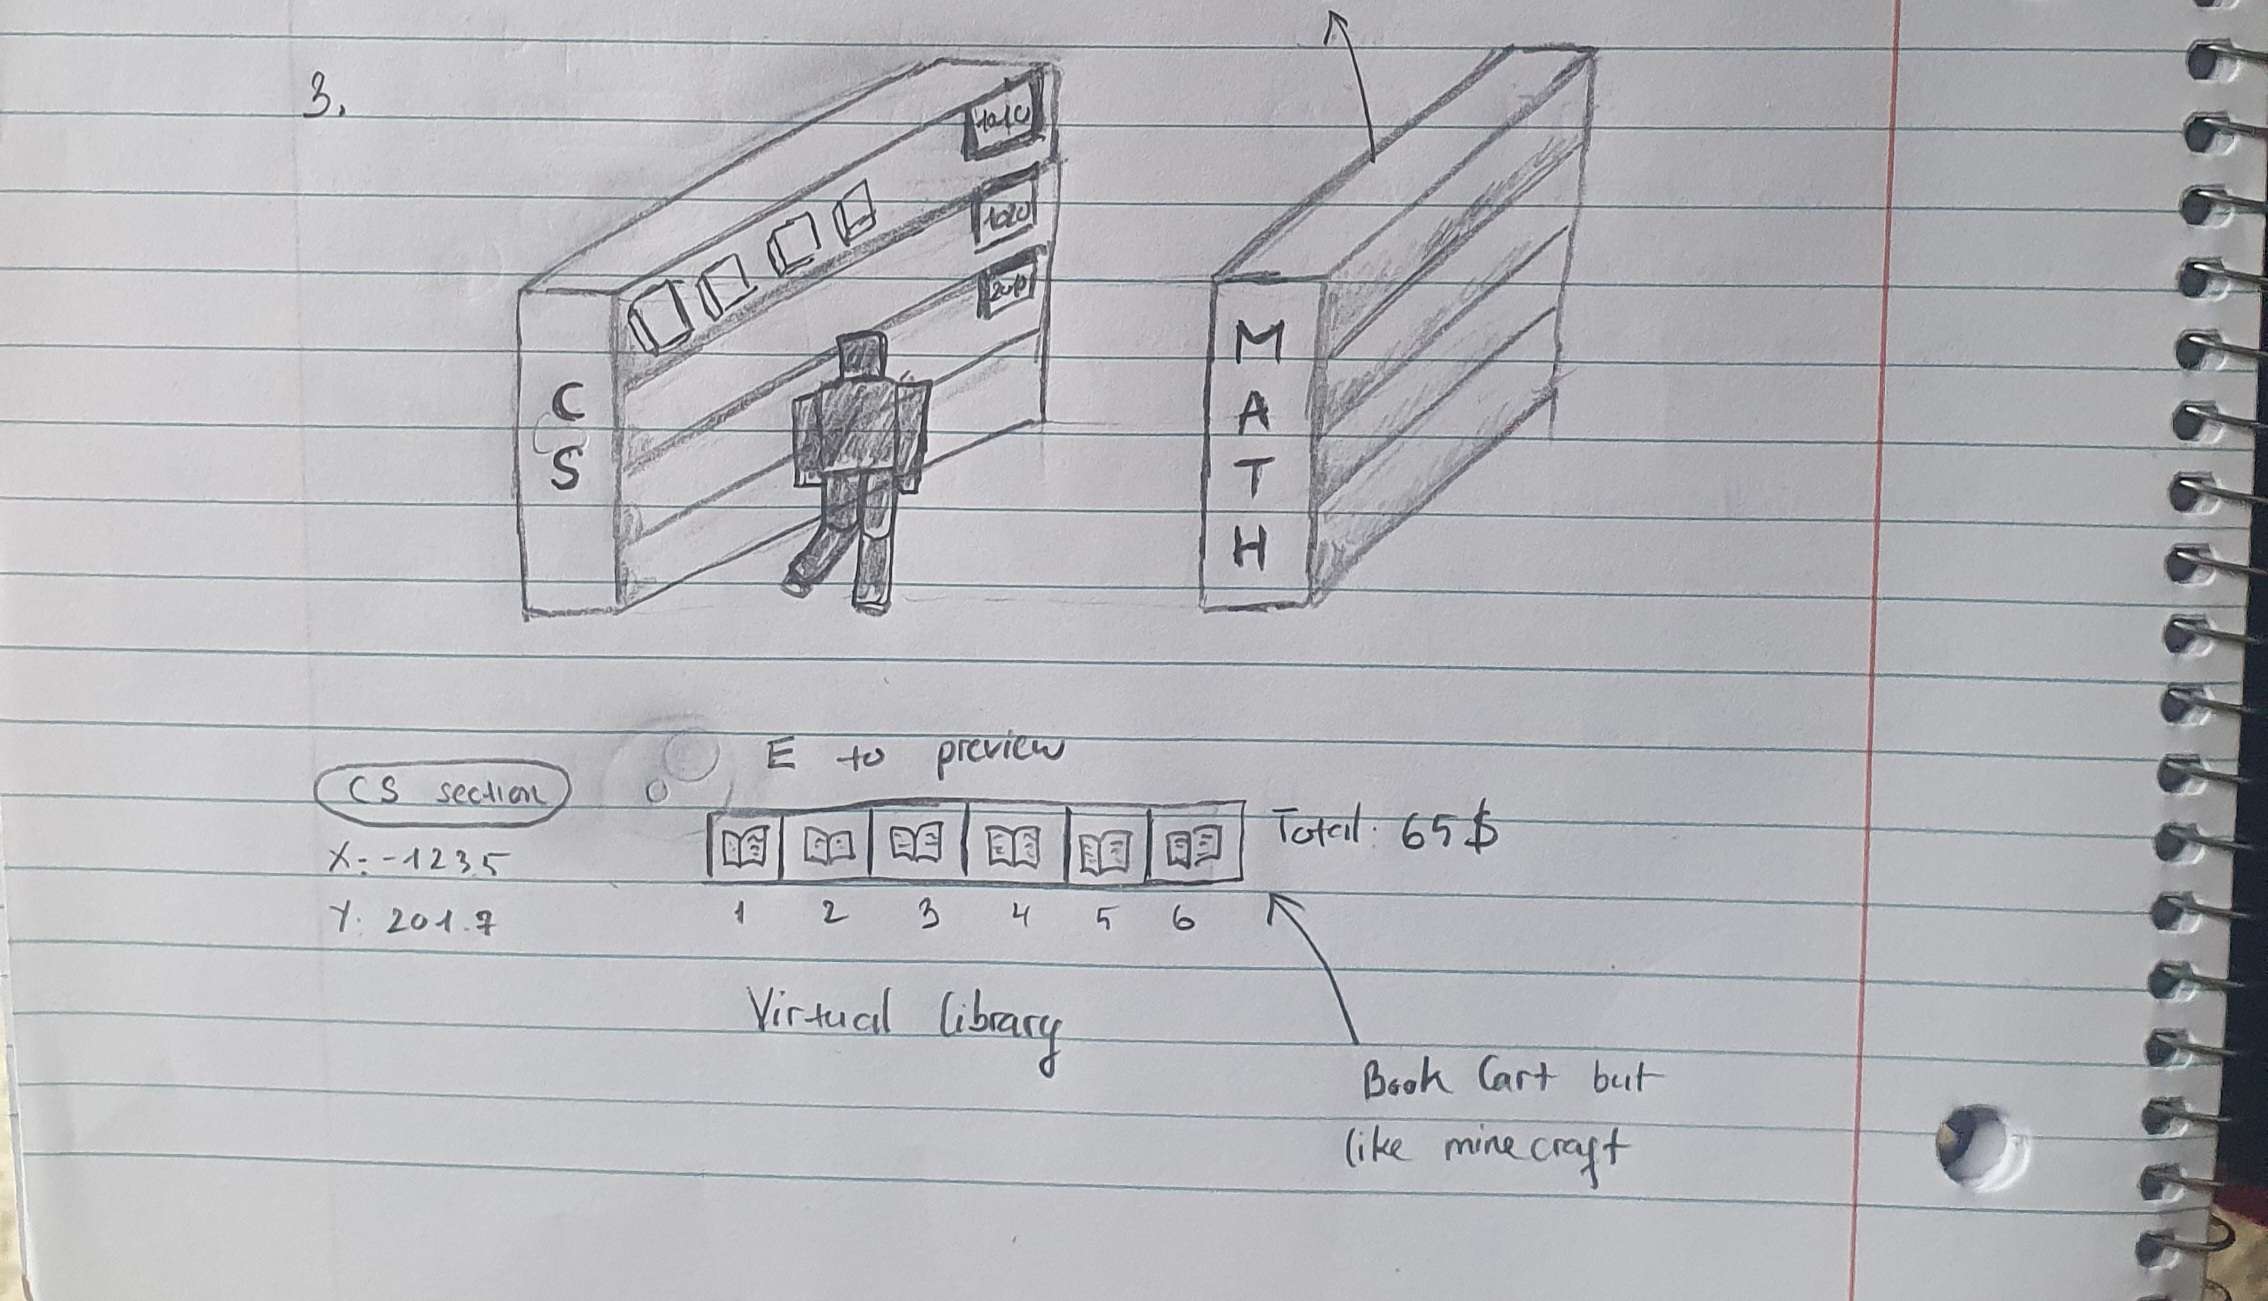 3.
1010
1020
2010
C
S
M
A
T
H
E to preview
CS section
X: -123.5
Y: 201.7
Total: 65$
1 2 3 4 5 6
Virtual library
Book Cart but
like minecraft